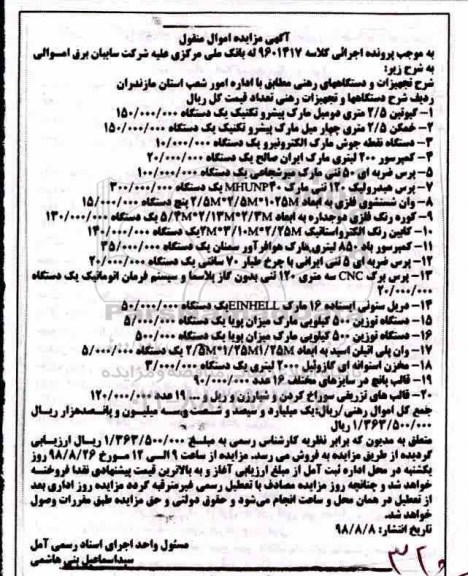 آگهی مزایده اموال منقول
به موجب پرونده اجرائی کلاسه ۹۶۰۱۴۱۷ له بانک ملی مرکزی علیه شرکت سایبان برق
به شرح زیر:
شرح تجهیزات و دستگاههای رهنی مطابق با اداره امور شعب استان مازندران
ردیف شرح دستگاهها و تجهیزات رهنی تعداد قیمت کل ریال
۱- گیوتین ۲/۵ متری دومیل مارک پیشرو تکنیک یک دستگاه ۱۵۰/۰۰۰/۰۰۰
۲- خمکن ۲/۵ متری چهار میل مارک پیشرو تکنیک یک دستگاه ۱۵۰/۰۰۰/۰۰۰
۳- دستگاه نقطه جوش مارک الکترونیرو یک دستگاه ۱۰/۰۰۰/۰۰۰
۴- کمپرسور ۲۰۰ لیتری مارک ایران صالح یک دستگاه ۲۰/۰۰۰/۰۰۰
۵- پرس ضربه ای ۵۰ تنی مارک میرشجاعی یک دستگاه ۱۰۰/۰۰۰/۰۰۰
۷- پرس هیدرولیک ۱۲۰ تنی مارک MHUNP۴۰ یک دستگاه ۳۰۰/۰۰۰/۰۰۰
۸- وان شستشوی فلزی به ابعاد ۲/۵M*۲/۵M*۱۰۲۵M پنج دستگاه ۱۵/۰۰۰/۰۰۰
۹- کوره رنگ فلزی دوجداره به ابعاد ۵/۴M*۲/۱۳M*۲/۳M یک دستگاه ۱۳۰/۰۰۰/۰۰۰
۱۰- کابین رنگ الکترواستاتیک ۲M*۳/۱۰M*۲/۲۵M یک دستگاه ۱۴۰/۰۰۰/۰۰۰
۱۱- کمپرسور باد ۸۵۰ لیتری مارک هوافرآور سمنان یک دستگاه ۳۵/۰۰۰/۰۰۰
۱۲- پرس ضربه ای ۵ تنی ایرانی با چرخ طیار ۷۰ سانتی یک دستگاه ۲۰/۰۰۰/۰۰۰
۱۳- پرس برک CNC سه متری ۱۲۰ تنی بدون گاز پلاسما و سیستم فرمان اتوماتیک یک دستگاه
۲۰/۰۰۰/۰۰۰
۱۴- دریل ستونی ایستاده ۱۶ مارک EINHELL یک دستگاه ۵۰/۰۰۰/۰۰۰
۱۵- دستگاه توزین ۵۰۰ کیلویی مارک میزان پویا یک دستگاه ۵/۰۰۰/۰۰۰
۱۶- دستگاه توزین ۵۰۰ کیلویی مارک میزان پویا یک دستگاه ۵۰۰/۰۰۰
۱۷- وان پلی اتیلن اسید به ابعاد ۲/۵M*۱/۲۵M۱/۲۵M یک دستگاه ۵/۰۰۰/۰۰۰
۱۸- مخزن استوانه ای گازوئیل ۲۰۰۰ لیتری یک دستگاه ۳/۰۰۰/۰۰۰
۱۹- قالب پانچ در سایزهای مختلف ۱۶ عدد ۹۰/۰۰۰/۰۰۰
۲۰- قالب های تزریقی سوراخ کردن و شیارزن و ریل و ... ۱۹ عدد ۱۲۰/۰۰۰/۰۰۰
جمع کل اموال رهنی/ریال: یک میلیارد و سیصد و شصت و سه میلیون و پانصدهزار ریال
۱/۳۶۳/۵۰۰/۰۰۰
متعلق به مدیون که برابر نظریه کارشناس رسمی به مبلغ ۱/۳۶۳/۵۰۰/۰۰۰ ریال ارزیابی
گردیده از طریق مزایده به فروش می رسد. مزایده از ساعت ۹ الی ۱۲ مورخ ۹۸/۸/۲۶ روز
یکشنبه در محل اداره ثبت آمل از مبلغ ارزیابی آغاز و به بالاترین قیمت پیشنهادی نقدا فروخته
خواهد شد و چنانچه روز مزایده مصادف با تعطیل رسمی غیرمترقبه گردد مزایده روز اداری بعد
از تعطیل در همان محل و ساعت انجام می‌شود و حقوق دولتی و حق مزایده طبق مقررات وصول
خواهد شد.
تاریخ انتشار: ۹۸/۸/۸
مسئول واحد اجرای اسناد رسمی آمل
سیداسماعیل بنی هاشمی